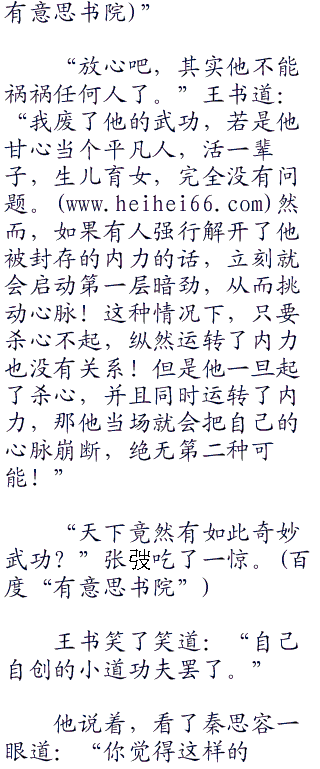 有意思书院)”
“放心吧，其实他不能
祸祸任何人了。”王书道：
“我废了他的武功，若是他
甘心当个平凡人，活一辈
子，生儿育女，完全没有问
题。(www.heihei66.com)然
而，如果有人强行解开了他
被封存的内力的话，立刻就
会启动第一层暗劲，从而挑
动心脉！这种情况下，只要
杀心不起，纵然运转了内力
也没有关系！但是他一旦起
了杀心，并且同时运转了内
力，那他当场就会把自己的
心脉崩断，绝无第二种可
能！”
“天下竟然有如此奇妙
武功？”张弢吃了一惊。(百
度“有意思书院”)
王书笑了笑道：“自己
自创的小道功夫罢了。”
他说着，看了秦思容一
眼道：“你觉得这样的